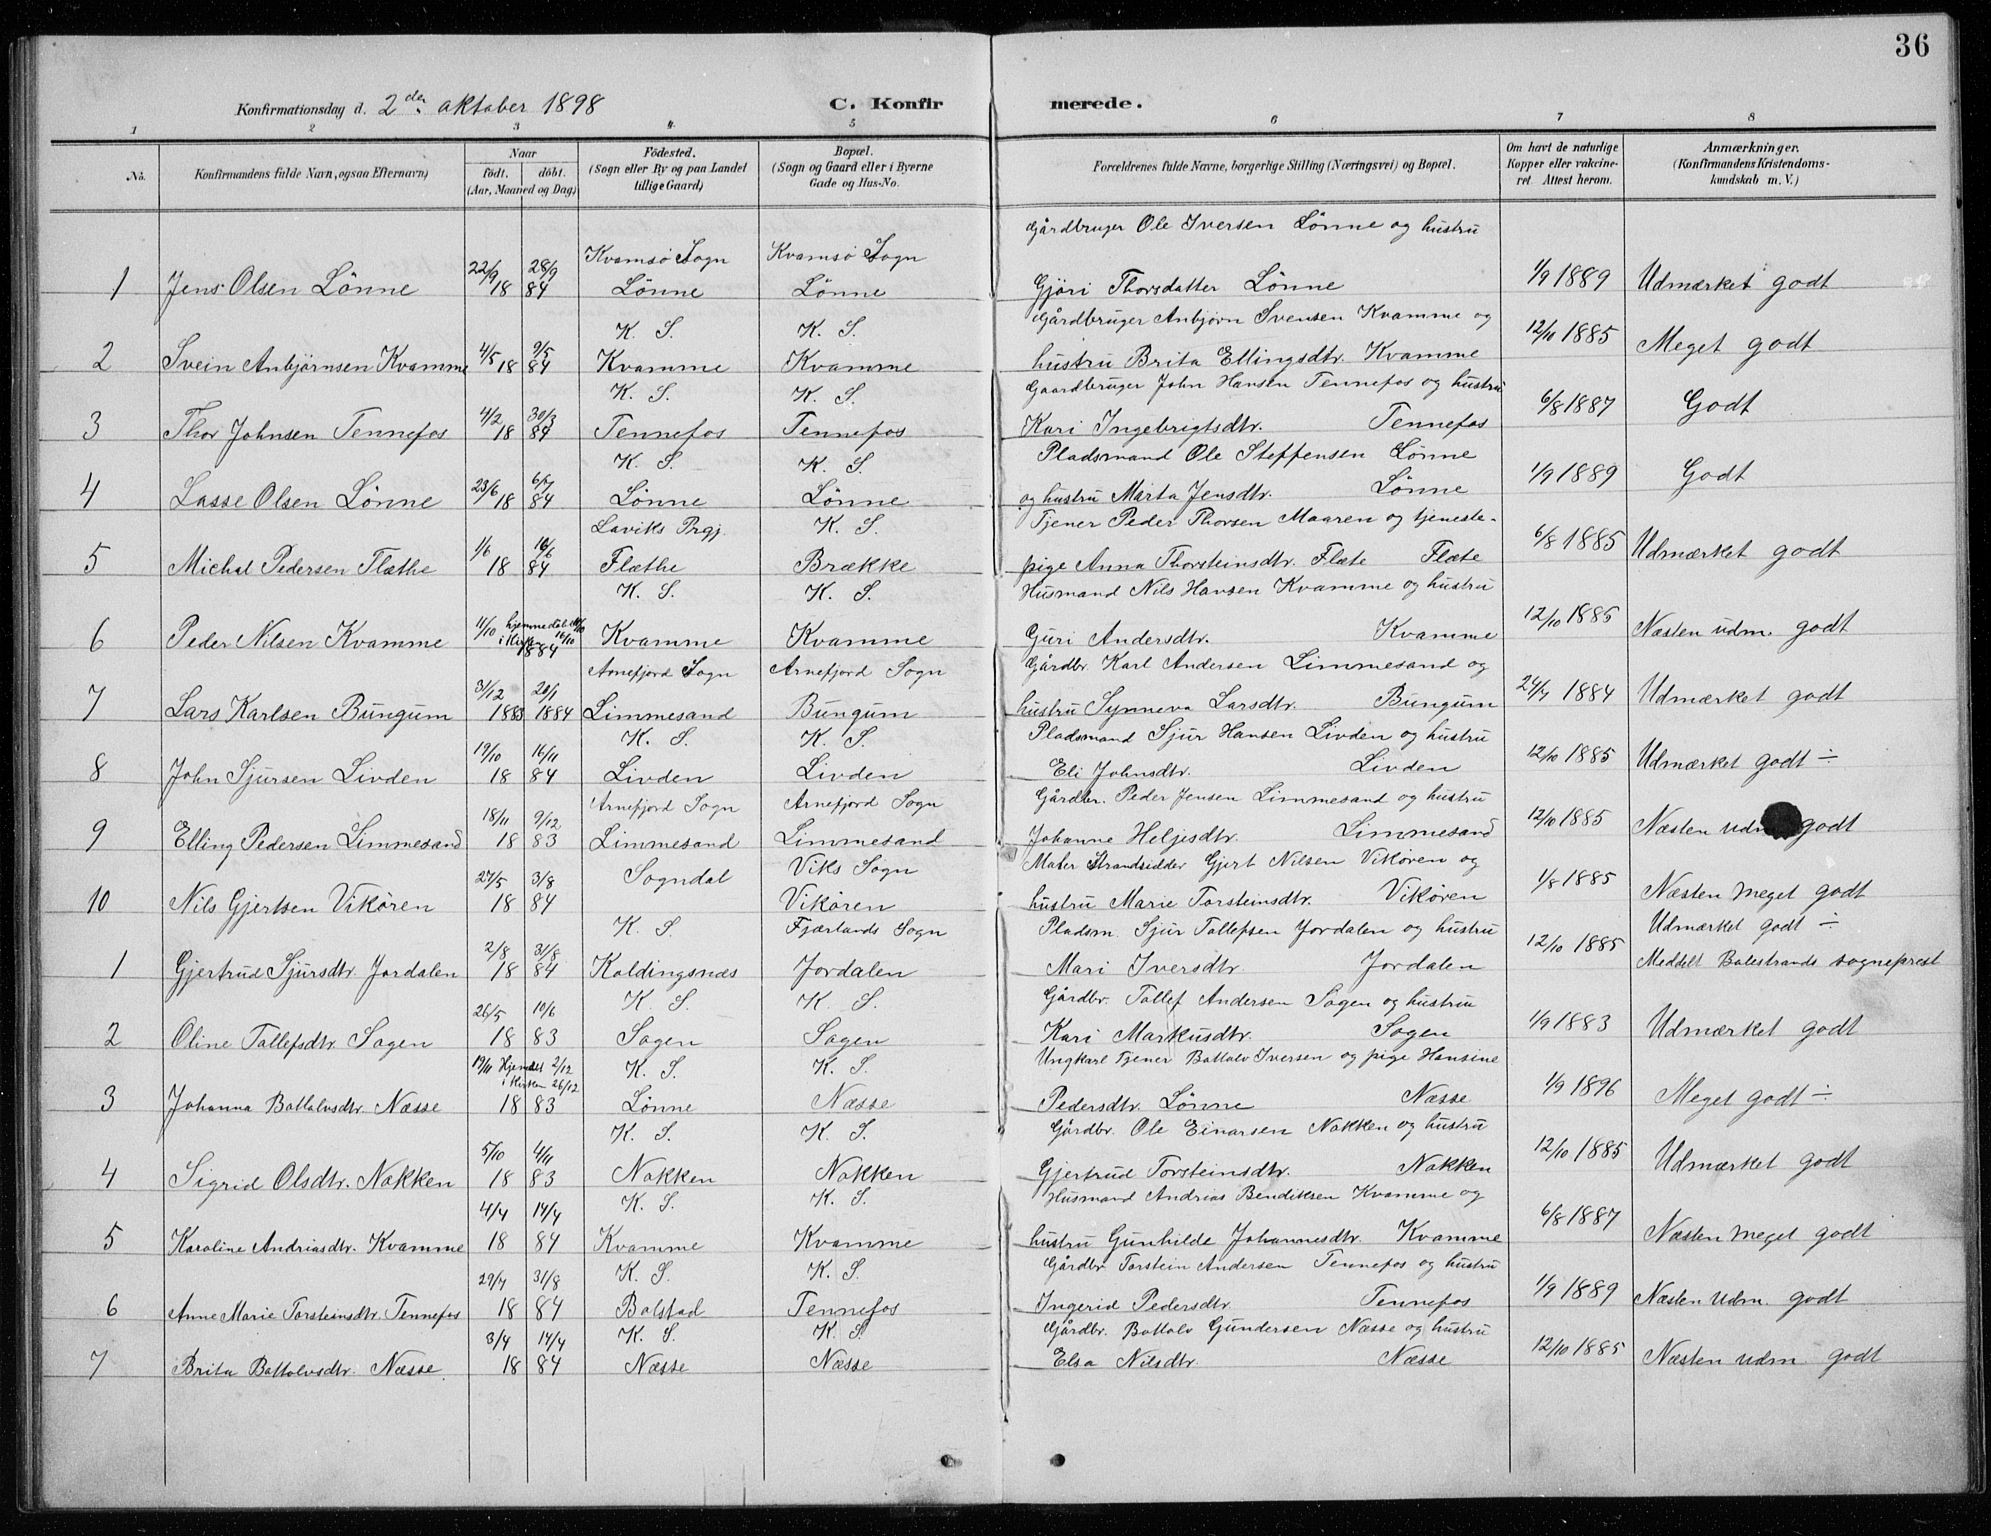 36
Konfirmationsdag d. 2den oktober 1898
C. Konfir merede.
1 2 3 4 5 6 7 8
No. Konfirmandens fulde Navn, ogsaa Efternavn) Naar født. døbt. (Aar, Maaned og Dag) Födested. (Sogn eller By og paa Landet tillige Gaard) Bopæl. (Sogn og Gaard eller i Byerne Gade og Hus-No. Forældrenes fulde Navne, borgerlige Stilling (Næringsvei) og Bopæl. Om havt de naturlige Kopper eller vakcineret. Attest herom. Anmærkninger. (Konfirmandens Kristendomskundskab m. V.)
Kvamsø Sogn Kvamsø Sogn Gårdbruger Ole Iversen Lønne og hustru
1 Jens Olsen Lönne 22/9 18 28/9 84 Lönne Lönne Gjöri Thorsdatter Lönne 1/9 1889 Udmærket godt
K. S. K. S. Gårdbruger Anbjörn Svensen Kvamme og
2 Svein Anbjörnsen Kvamme 4/5 18 9/5 84 Kvamme Kvamme hustru Brita Ellingsdtr. Kvamme 12/10 1885 Meget godt
K. S. K. S. Gaardbruger John Hansen Tennefos og hustru
3 Thor Johnsen Tennefos 4/2 18 30/3 84 Tennefos Tennefos Kari Ingebrigtsdtr. Tennefos 6/8 1887 Godt
K. S. K. S. Pladsmand Ole Steffensen Lönne
4 Lasse Olsen Lönne 23/6 18 6/7 84 Lönne Lönne og hustru Marta Jensdtr. Lönne 1/9 1889 Godt
Laviks Prgj. K. S. Tjener Peder Thorsen Maaren og tjeneste-
5 Michal Pedersen Flæthe 1/6 18 16/6 84 Flæthe Brække pige Anna Thorsteinsdtr. Flæte Flæte 6/8 1885 Udmærket godt
K. S. K. S. Husmand Nils Hansen Kvamme og hustru
6 Peder Nilsen Kvamme 11/10 hjemmedöbt 11/10 i Kirken 16/10 1884 Kvamme Kvamme Guri Andersdtr. Kvamme 12/10 1885 Næsten udm. godt
Arnefjord Sogn Arnefjord Sogn Gårdbr. Karl Andersen Limmesand og
7 Lars Karlsen Bungum 31/12 1883 20/1 1884 Limmesand Bungum hustru Synneva Larsdtr. Bungum 24/7 1884 Udmærket godt
K. S. K. S. Pladsmand Sjur Hansen Livden og hustru
8 John Sjursen Livden 19/10 18 16/11 84 Livden Livden Eli Johnsdtr. Livden 12/10 1885 Udmærket godt ÷
Arnefjord Sogn Arnefjord Sogn Gårdbr. Peder Jensen Limmesand og hustru
9 Elling Pedersen Limmesand 18/11 18 9/12 83 Limmesand Limmesand Johanne Heljesdtr. Limmesand 12/10 1885 Næsten udm. godt
Sogndal Viks Sogn Maler Strandsidder Gjert Nilsen Vikøren og
10 Nils Gjertsen Vikøren 27/5 18 3/8 84 Vikøren hustru Marie Torsteinsdtr. Vikøren 1/8 1885 Næsten meget godt
K. S. Fjærlands Sogn Pladsm. Sjur Tollefsen Jordalen og hustru Udmærket godt ÷
1 Gjertrud Sjursdtr. Jordalen 2/8 18 31/8 84 Koldingsnæs Jordalen Mari Iversdtr. Jordalen 12/10 1885 Meddelt Balestrands sogneprest
K. S. K. S. Gårdbr. Tollef Andersen Sagen og hustru
2 Oline Tollefsdtr. Sagen 26/5 18 10/6 83 Sagen Sagen Kari Markusdtr. Sagen 1/9 1883 Udmærket godt
K. S. K. S. Ungkarl Tjener Bottolv Iversen og pige Hansine
3 Johanna Bottolvsdtr. Næsse 19/11 Hjemdöbt 2/12 i Kirken 26/12 18 83 Lönne Næsse Pedersdtr. Lönne Næsse 1/9 1896 Meget godt ÷
K. S. K. S. Gårdbr. Ole Einarsen Nokken og hustru
4 Sigrid Olsdtr. Nokken 5/10 18 4/11 83 Nokken Nokken Gjertrud Torsteinsdtr. Nokken 12/10 1885 Udmærket godt
K. S. K. S. Husmand Andrias Bendiksen Kvamme og
5 Karoline Andriasdtr. Kvamme 4/4 18 14/4 84 Kvamme Kvamme hustru Gunhilde Johannesdtr. Kvamme 6/8 1887 Næsten meget godt
K. S. K. S. Gårdbr. Torstein Andersen Tennefos og hustru
6 Anne Marie Torsteinsdtr. Tennefos 29/7 18 31/8 84 Bolstad Tennefos Ingerid Pedersdtr. Tennefos 1/9 1889 Næsten Udm. godt
K. S. K. S. Gårdbr. Bottolv Gundersen Næsse og hustru
7 Brita Bottolvsdtr. Næsse. 3/4 18 14/4 84 Næsse Næsse Elsa Nilsdtr. Næsse 12/10 1885 Næsten udm. godt